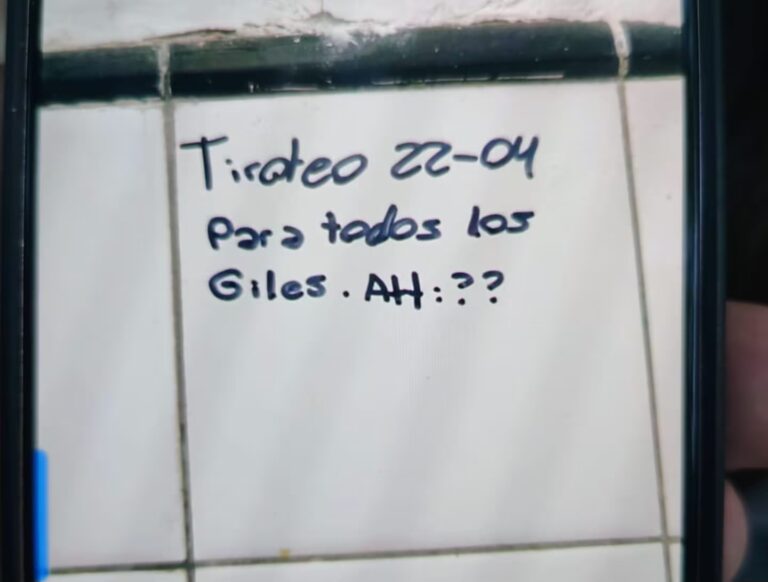 Tiroteo 22-04
Para todos los
Giles. AH:??